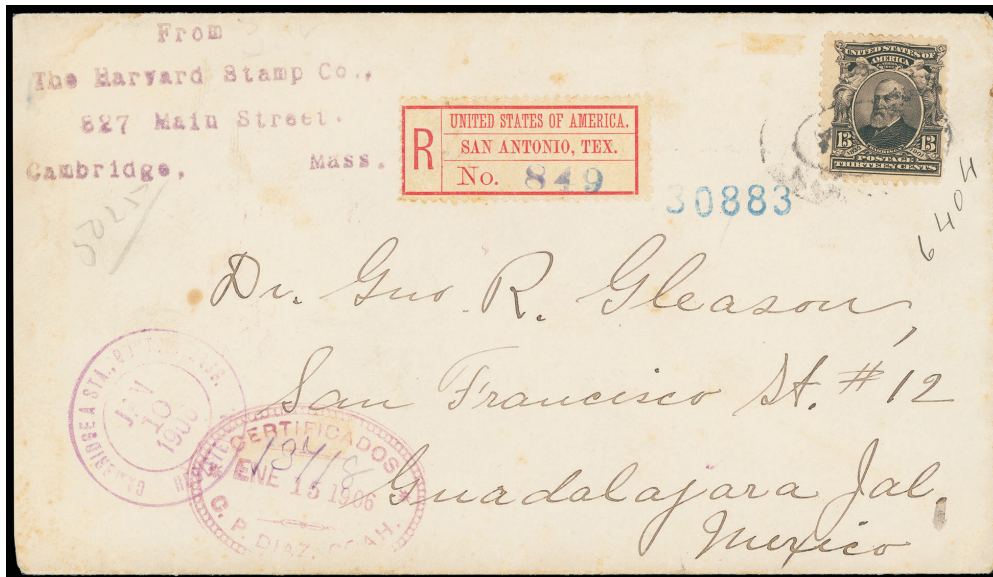 From
The Harvard Stamp Co.,
827 Main Street.
Cambridge, Mass.
R
UNITED STATES OF AMERICA.
SAN ANTONIO, TEX.
No. 849
30883
UNITED STATES OF
AMERICA
13 13
POSTAGE
THIRTEEN CENTS
6404
Dr. Geo R. Gleason,
San Francisco St. #12
Guadalajara Jal.
Mexico
CAMBRIDGE A STA.,
JAN
10
1906
REGISTERED
CERTIFICADOS
13418
ENE 15 1906
C. P. DIAZ, COAH.